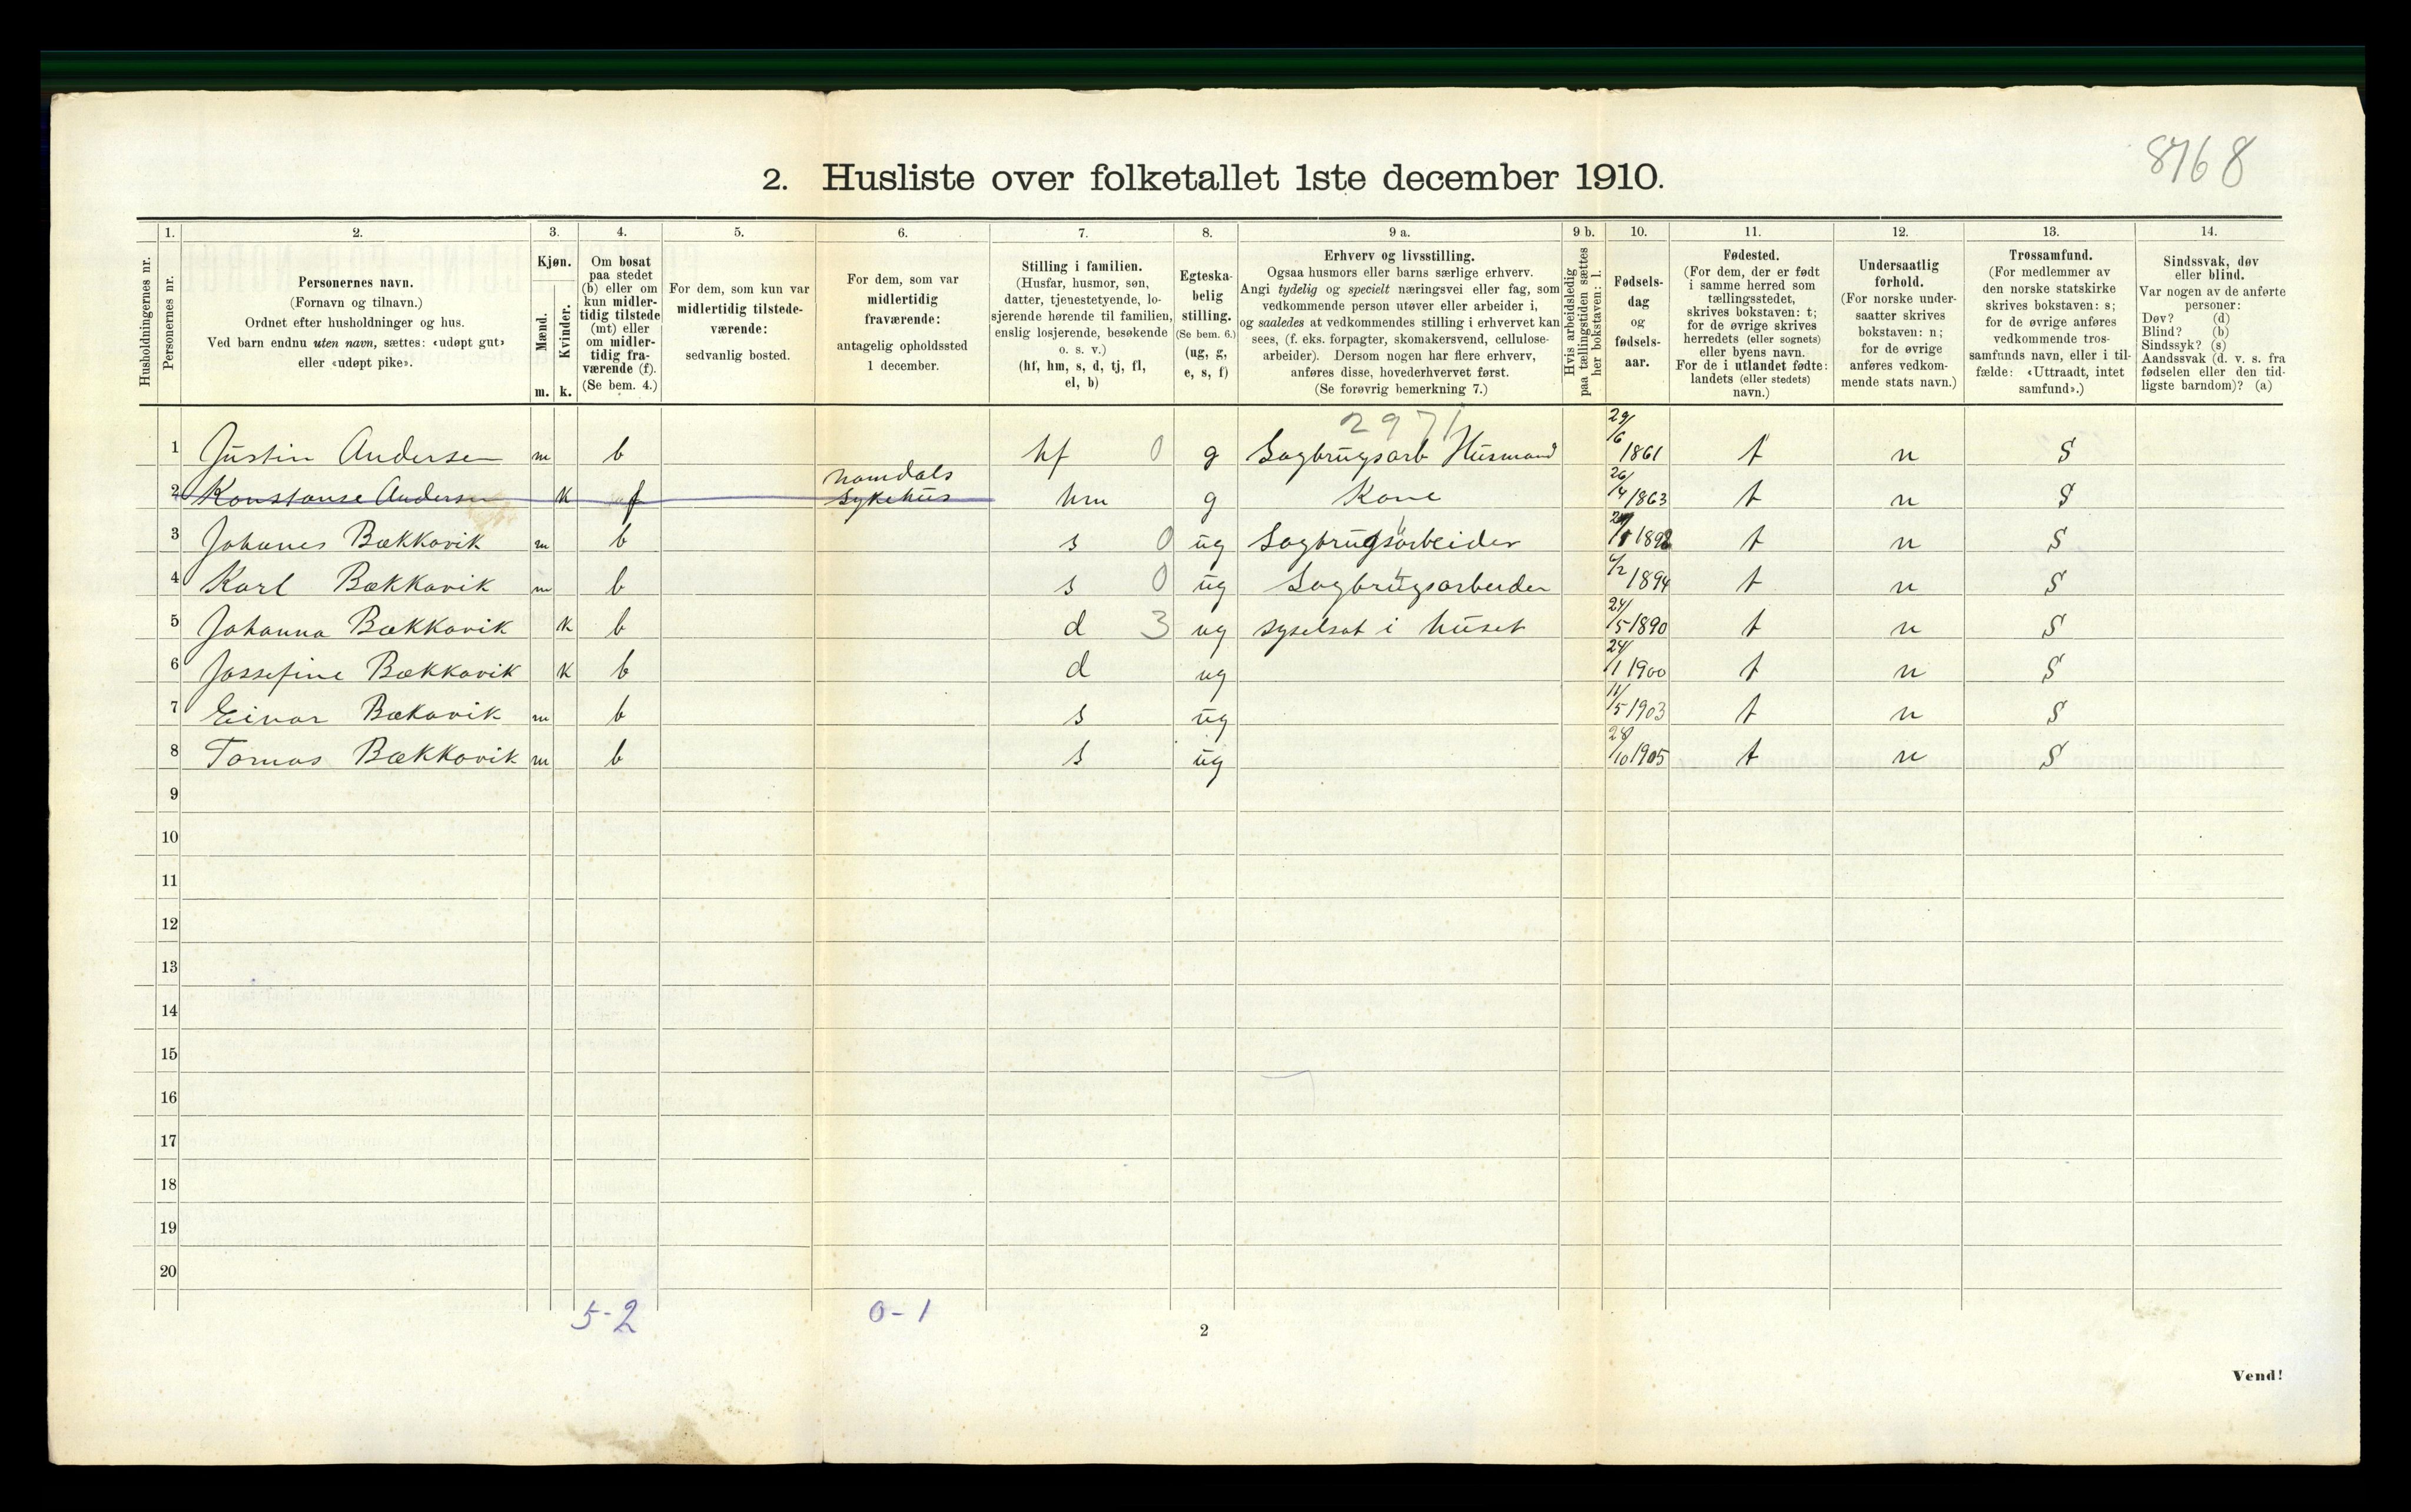 8768
2. Husliste over folketallet 1ste december 1910.
Husholdningernes nr.
1.
Personernes nr.
2.
Personernes navn.
(Fornavn og tilnavn.)
Ordnet efter husholdninger og hus.
Ved barn endnu uten navn, sættes: «udøpt gut»
eller «udøpt pike».
3.
Kjøn.
Mænd.
Kvinder.
m. k.
4.
Om bosat
paa stedet
(b) eller om
kun midler-
tidig tilstede
(mt) eller
om midler-
tidig fra-
værende (f).
(Se bem. 4.)
5.
For dem, som kun var
midlertidig tilstede-
værende:
sedvanlig bosted.
6.
For dem, som var
midlertidig
fraværende:
antagelig opholdssted
1 december.
7.
Stilling i familien.
(Husfar, husmor, søn,
datter, tjenestetyende, lo-
sjerende hørende til familien,
enslig losjerende, besøkende
o. s. v.)
(hf, hm, s, d, tj, fl,
el, b)
8.
Egteska-
belig
stilling.
(Se bem. 6.)
(ug, g,
e, s, f)
9 a.
Erhverv og livsstilling.
Ogsaa husmors eller barns særlige erhverv.
Angi tydelig og specielt næringsvei eller fag, som
vedkommende person utøver eller arbeider i,
og saaledes at vedkommendes stilling i erhvervet kan
sees, (f. eks. forpagter, skomakersvend, cellulose-
arbeider). Dersom nogen har flere erhverv,
anføres disse, hovederhvervet først.
(Se forøvrig bemerkning 7.)
9 b.
Hvis arbeidsledig
paa tællingstiden sættes
her bokstaven: l.
10.
Fødsels-
dag
og
fødsels-
aar.
11.
Fødested.
(For dem, der er født
i samme herred som
tællingsstedet,
skrives bokstaven: t;
for de øvrige skrives
herredets (eller sognets)
eller byens navn.
For de i utlandet fødte:
landets (eller stedets)
navn.)
12.
Undersaatlig
forhold.
(For norske under-
saatter skrives
bokstaven: n;
for de øvrige
anføres vedkom-
mende stats navn.)
13.
Trossamfund.
(For medlemmer av
den norske statskirke
skrives bokstaven: s;
for de øvrige anføres
vedkommende tros-
samfunds navn, eller i til-
fælde: «Uttraadt, intet
samfund».)
14.
Sindssvak, døv
eller blind.
Var nogen av de anførte
personer:
Døv? (d)
Blind? (b)
Sindssyk? (s)
Aandssvak (d. v. s. fra
fødselen eller den tid-
ligste barndom)? (a)
2971
1 Justin Andersen m b hf 0 g Sagbrugsarb Husmand 29/6 1861 t n S
2 Konstanse Andersen k f Namdals Sykehus hm g Kone 26/4 1863 t n S
3 Johanes Bækkavik m b s 0 ug Sagbrugsarbeider 1892 t n S
4 Karl Bækkavik m b s 0 ug Sagbrugsarbeider 6/2 1894 t n S
5 Johanna Bækkavik k b d 3 ug syselsat i huset 24/5 1890 t n S
6 Jossefine Bækkavik k b d ug 24/1 1900 t n S
7 Einar Bækavik m b s ug 11/5 1903 t n S
8 Tomas Bækkavik m b s ug 28/10 1905 t n S
9
10
11
12
13
14
15
16
17
18
19
20
5-2 0-1
2
Vend!